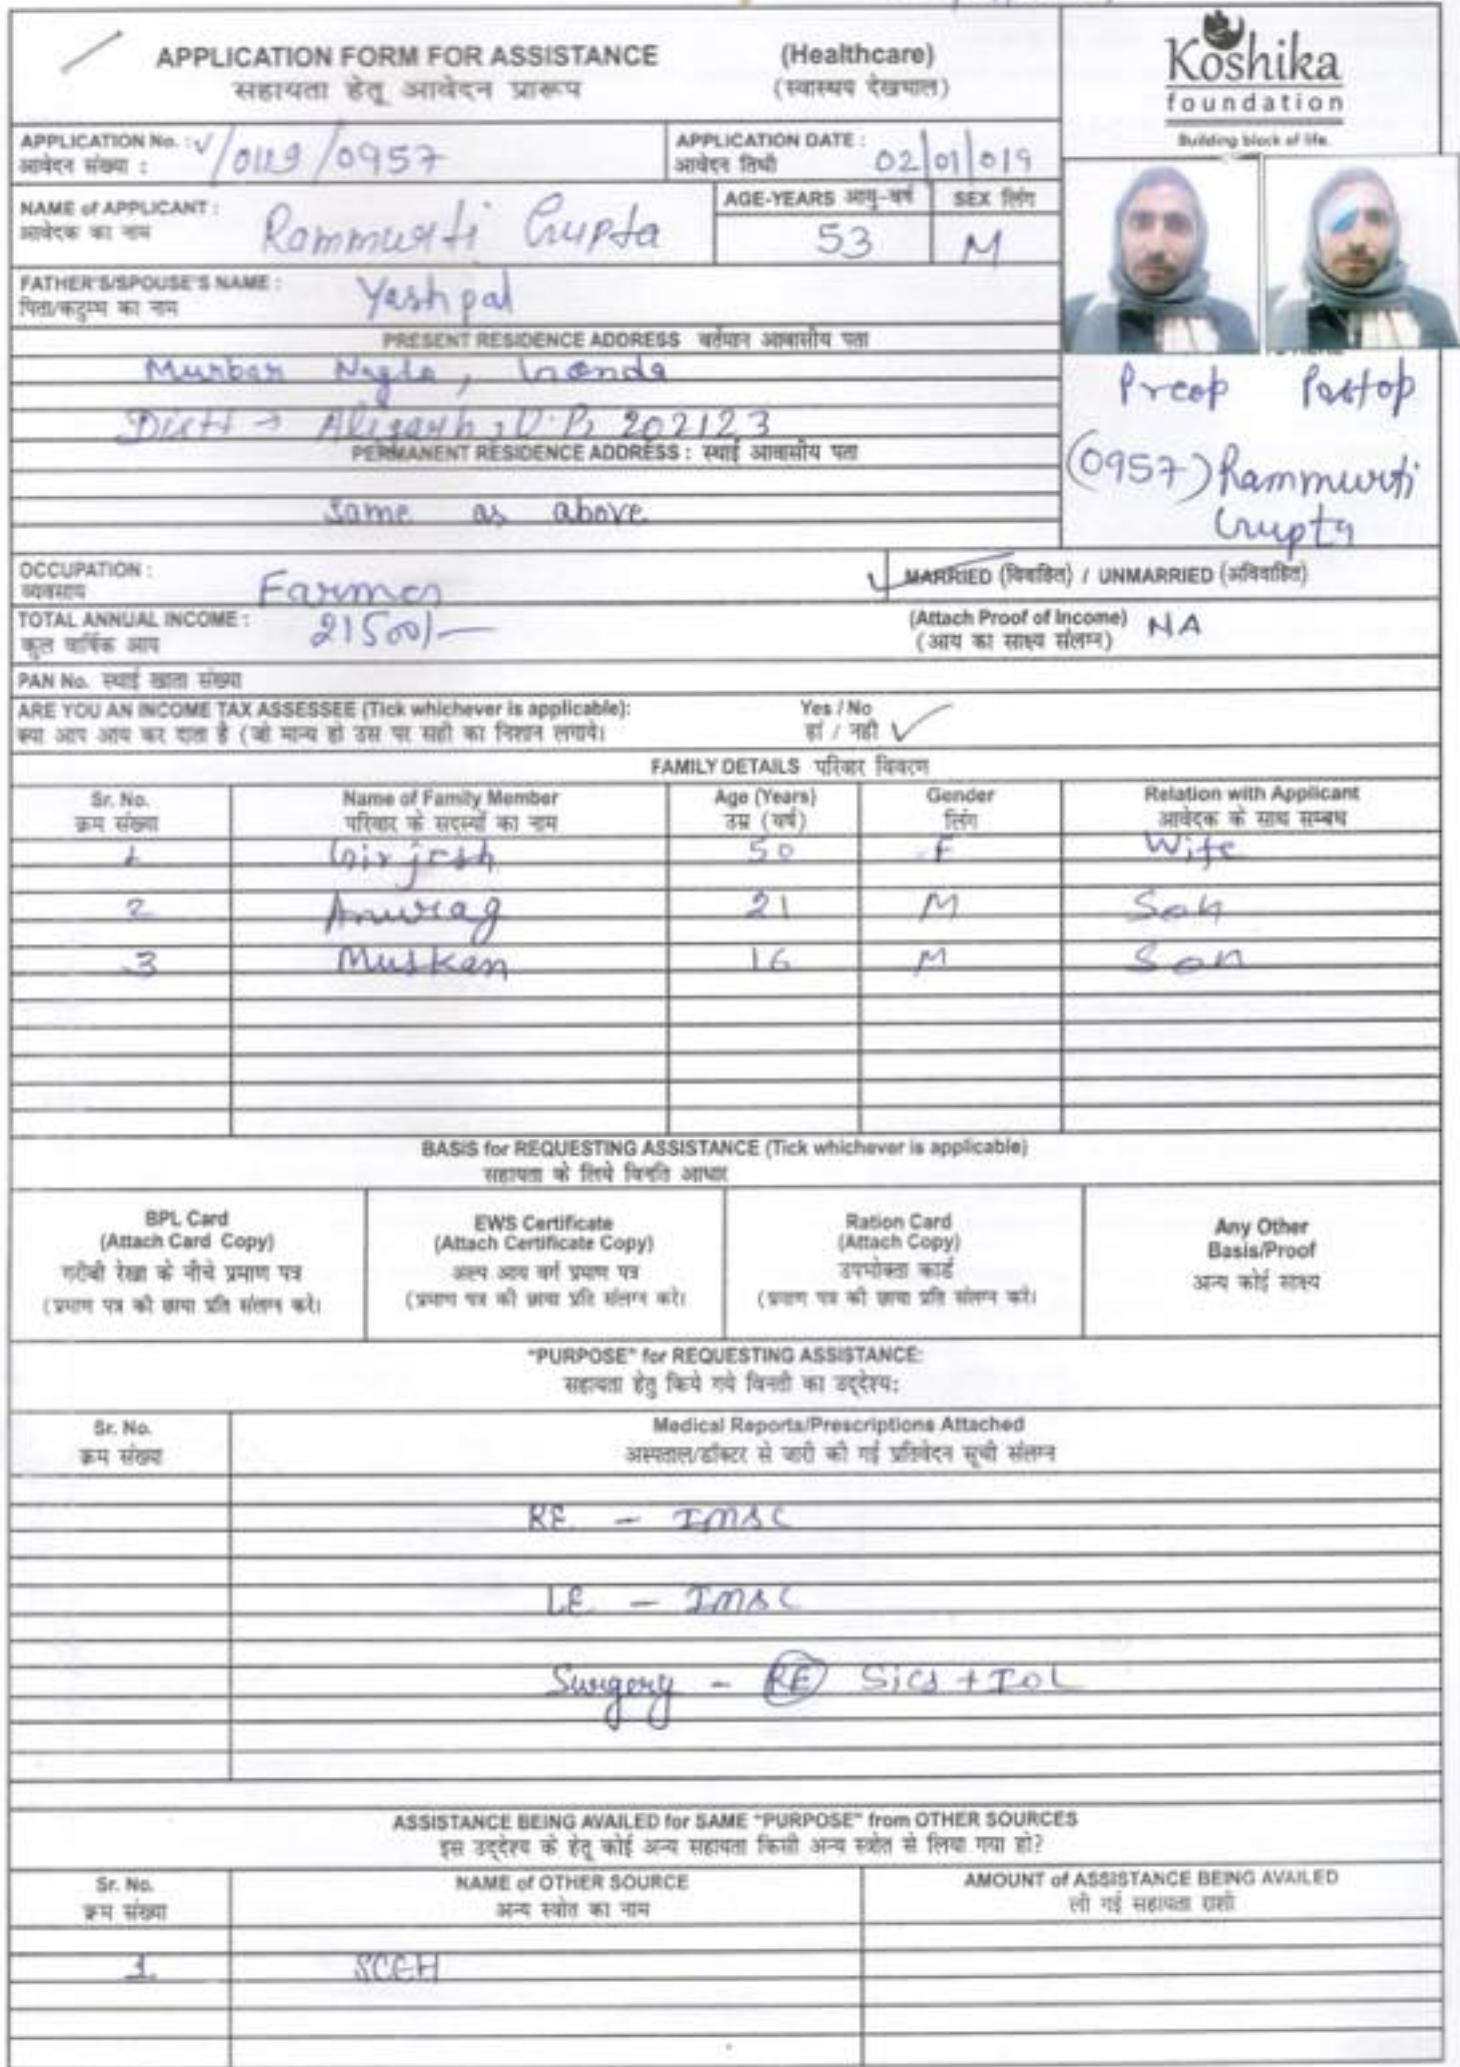 APPLICATION FORM FOR ASSISTANCE (Healthcare)
सहायता हेतू आवेदन प्रारूप (स्वास्थय देखभाल)
Koshika
foundation
Building block of life.
APPLICATION No. : √/0119/0957
आवेदन संख्या :
APPLICATION DATE : 02/01/019
आवेदन तिथी
NAME of APPLICANT : Rammurti Gupta
आवेदक का नाम
AGE-YEARS आयु-वर्ष 53
SEX लिंग M
FATHER'S/SPOUSE'S NAME : Yashpal
पिता/कटुम्ब का नाम
PRESENT RESIDENCE ADDRESS वर्तमान आवासीय पता
Nagla, Gonda
Distt → Aligarh, U.P. 202123
PERMANENT RESIDENCE ADDRESS : स्थाई आवासीय पता
Same as above
Preop Postop
(0957) Rammurti
Gupta
OCCUPATION : Farmer
व्यवसाय
MARRIED (विवाहित) / UNMARRIED (अविवाहित)
TOTAL ANNUAL INCOME : 21500/-
कुल वार्षिक आय
(Attach Proof of Income) NA
(आय का साक्ष्य संलग्न)
PAN No. स्थाई खाता संख्या
ARE YOU AN INCOME TAX ASSESSEE (Tick whichever is applicable): Yes / No
क्या आप आय कर दाता है (जो मान्य हो उस पर सही का निशान लगाये। हां / नही ✓
FAMILY DETAILS परिवार विवरण
Sr. No. Name of Family Member Age (Years) Gender Relation with Applicant
क्रम संख्या परिवार के सदस्यों का नाम उम्र (वर्ष) लिंग आवेदक के साथ सम्बध
1 Girjesh 50 F Wife
2 Anurag 21 M Son
3 Muskan 16 M Son
BASIS for REQUESTING ASSISTANCE (Tick whichever is applicable)
सहायता के लिये विनति आधार
BPL Card
(Attach Card Copy)
गरीबी रेखा के नीचे प्रमाण पत्र
(प्रमाण पत्र की छाया प्रति संलग्न करे।
EWS Certificate
(Attach Certificate Copy)
अल्प आय वर्ग प्रमाण पत्र
(प्रमाण पत्र की छाया प्रति संलग्न करे।
Ration Card
(Attach Copy)
उपभोक्ता कार्ड
(प्रमाण पत्र की छाया प्रति संलग्न करे।
Any Other
Basis/Proof
अन्य कोई साक्ष्य
"PURPOSE" for REQUESTING ASSISTANCE:
सहायता हेतु किये गये विनती का उद्देश्य:
Sr. No. Medical Reports/Prescriptions Attached
क्रम संख्या अस्पताल/डॉक्टर से जारी की गई प्रतिवेदन सूची संलग्न
RE - IMSC
LE - IMSC
Surgery - RE SICS + IOL
ASSISTANCE BEING AVAILED for SAME "PURPOSE" from OTHER SOURCES
इस उद्देश्य के हेतू कोई अन्य सहायता किसी अन्य स्त्रोत से लिया गया हो?
Sr. No. NAME of OTHER SOURCE AMOUNT of ASSISTANCE BEING AVAILED
क्रम संख्या अन्य स्त्रोत का नाम ली गई सहायता राशी
1. SCEH